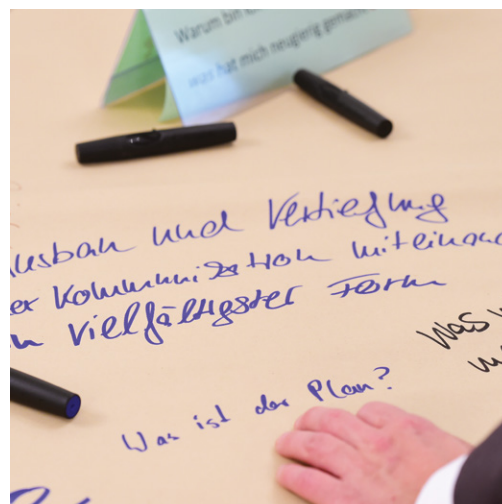 Warum bin
was hat mich neugierig gemacht
Ausbau und Vertiefung
der Kommunikation miteinander
in vielfältigster Form
Was
Was ist der Plan?